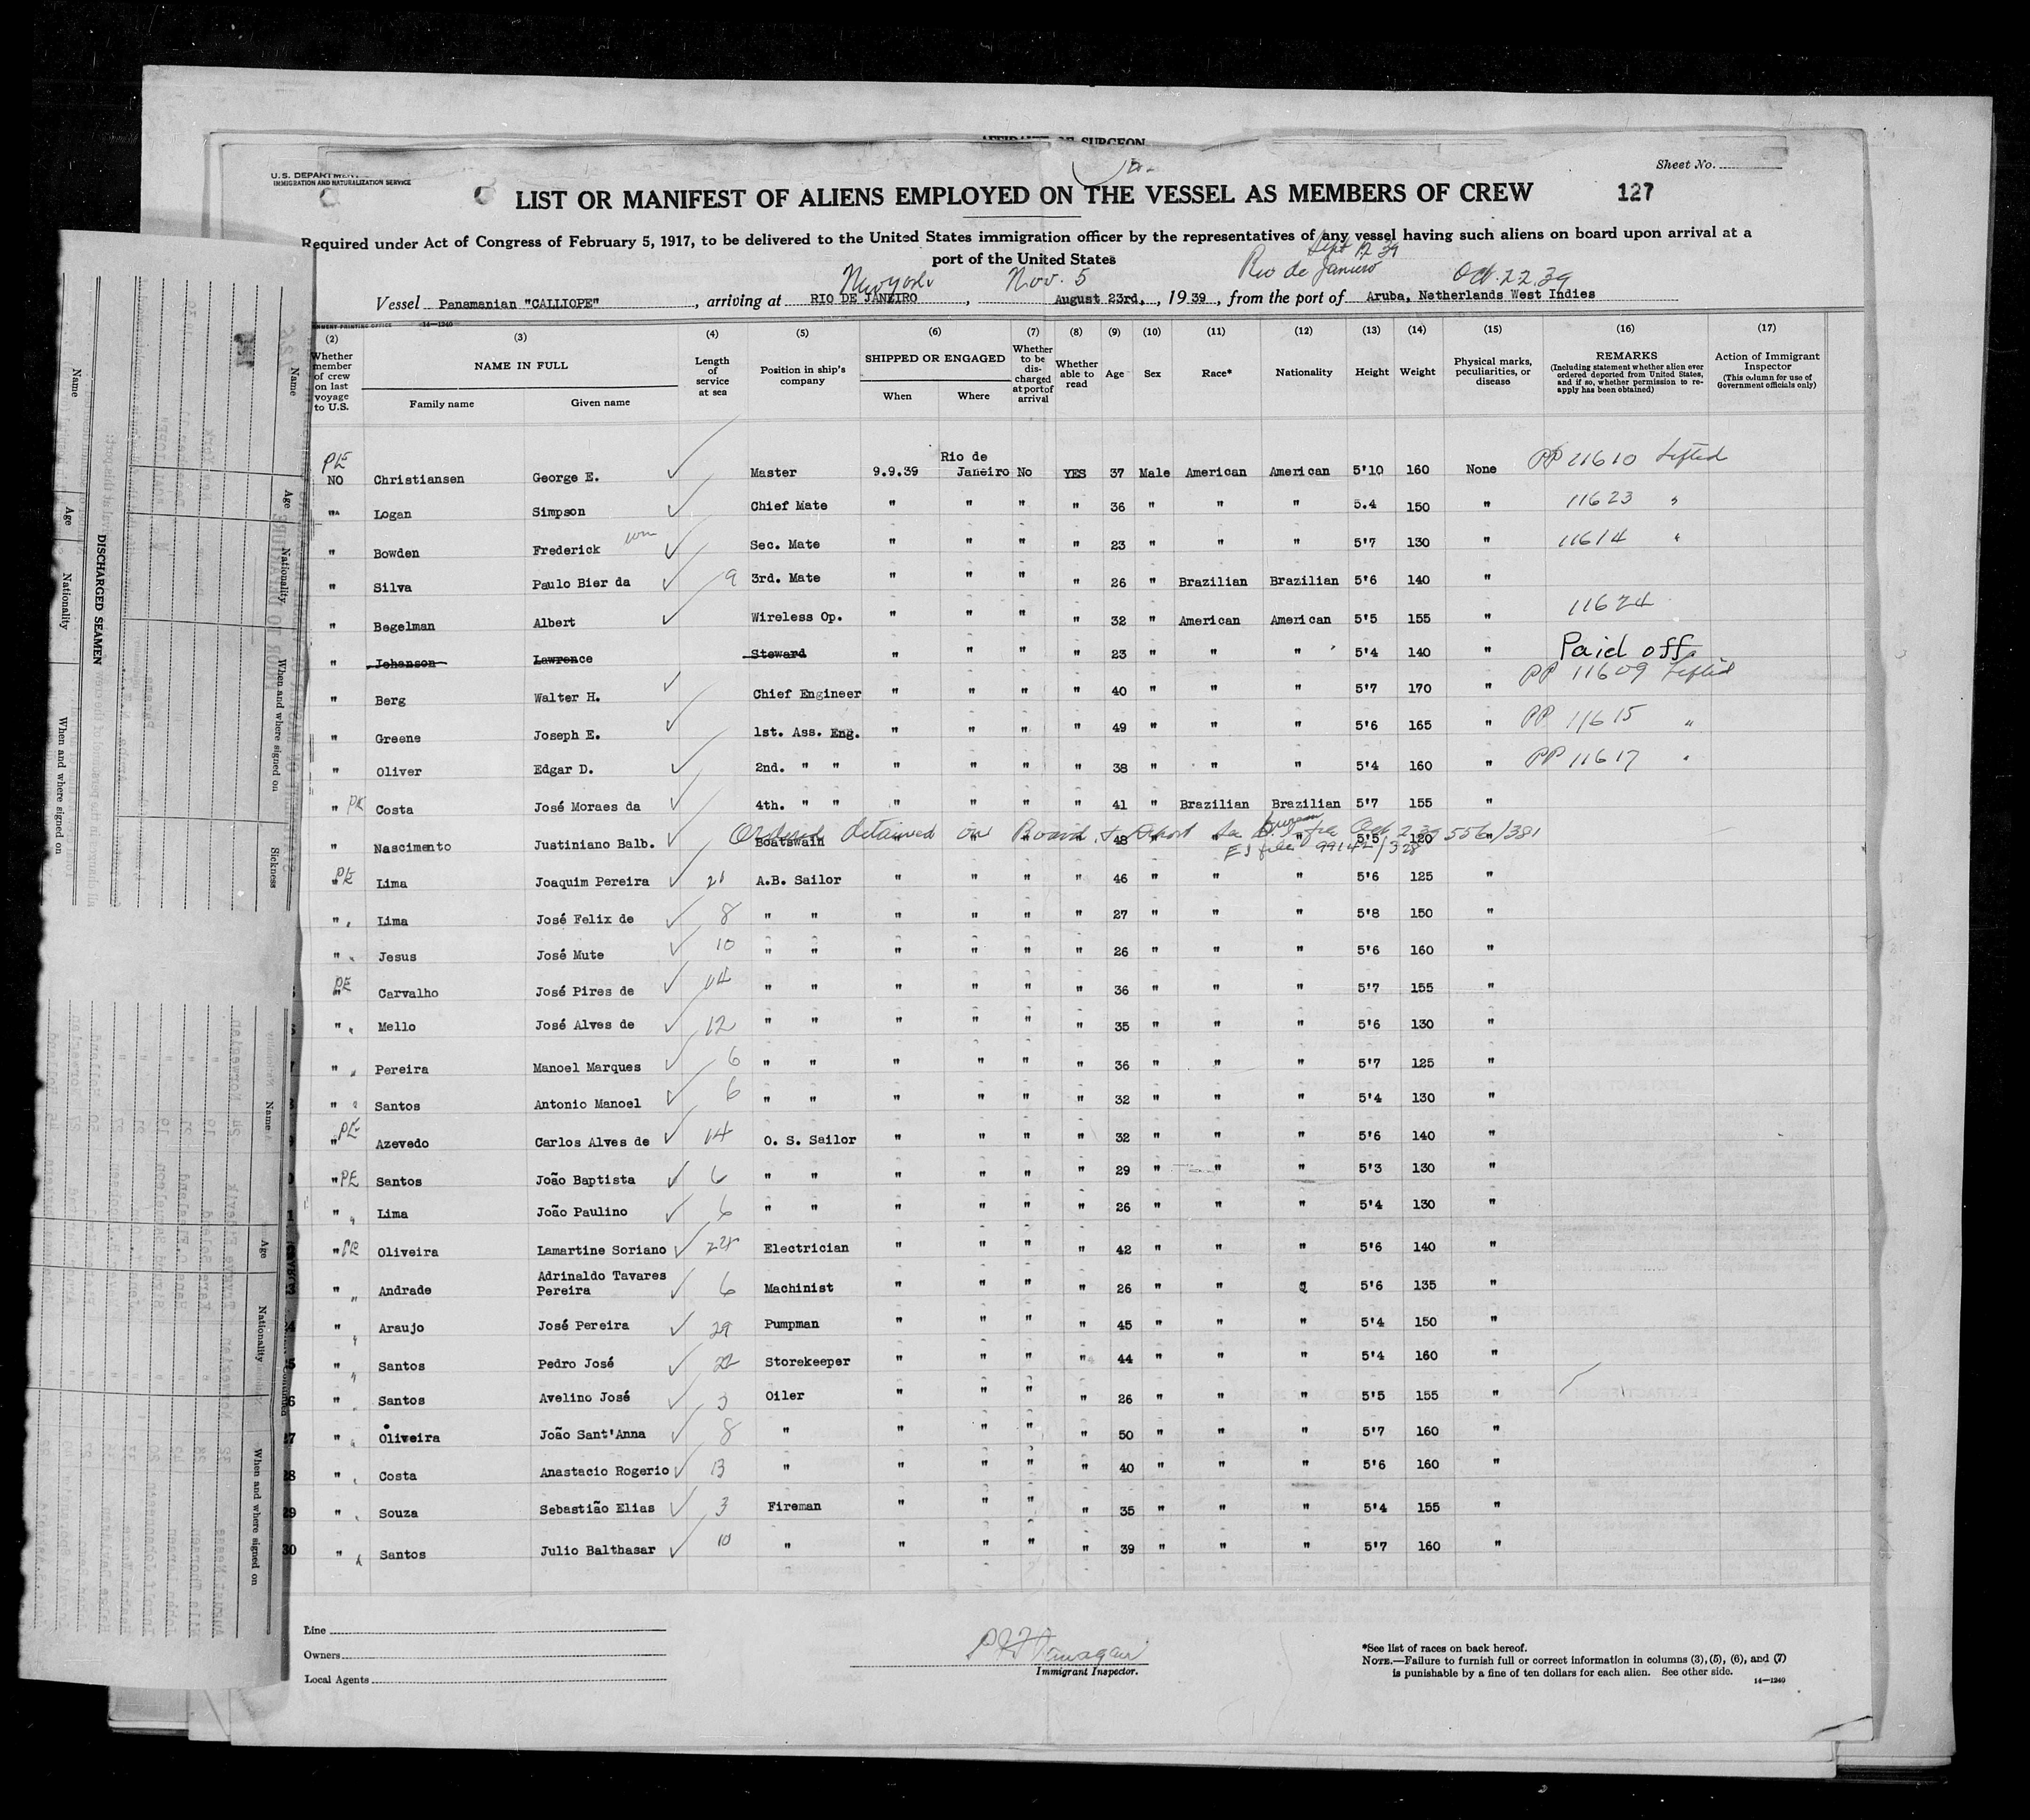 AFFIDAVIT OF SURGEON
Sheet No.
U.S. DEPARTMENT
IMMIGRATION AND NATURALIZATION SERVICE
LIST OR MANIFEST OF ALIENS EMPLOYED ON THE VESSEL AS MEMBERS OF CREW 127
Required under Act of Congress of February 5, 1917, to be delivered to the United States immigration officer by the representatives of any vessel having such aliens on board upon arrival at a
port of the United States
Sept 12 39
New York Nov. 5 Rio de Janiero Oct. 22. 39
Vessel Panamanian "CALLIOPE", arriving at RIO DE JANEIRO, August 23rd., 1939, from the port of Aruba, Netherlands West Indies
14—1240
(2) (3) (4) (5) (6) (7) (8) (9) (10) (11) (12) (13) (14) (15) (16) (17)
Whether member of crew on last voyage to U.S.
NAME IN FULL
Family name Given name
Length of service at sea
Position in ship's company
SHIPPED OR ENGAGED
When Where
Whether to be discharged at port of arrival
Whether able to read
Age Sex Race* Nationality Height Weight
Physical marks, peculiarities, or disease
REMARKS
(Including statement whether alien ever ordered deported from United States, and if so, whether permission to reapply has been obtained)
Action of Immigrant Inspector
(This column for use of Government officials only)
PE NO Christiansen George E. ✓ Master 9.9.39 Rio de Janeiro No YES 37 Male American American 5'10 160 None PP 11610 Lifted
" Logan Simpson ✓ Chief Mate " " " " 36 " " " 5.4 150 " 11623 "
" Bowden Frederick wm ✓ Sec. Mate " " " " 23 " " " 5'7 130 " 11614 "
" Silva Paulo Bier da ✓ 9 3rd. Mate " " " " 26 " Brazilian Brazilian 5'6 140 "
" Begelman Albert ✓ Wireless Op. " " " " 32 " American American 5'5 155 " 11624
" Johanson Lawrence Steward " " " " 23 " " " 5'4 140 " Paid off
" Berg Walter H. ✓ Chief Engineer " " " " 40 " " " 5'7 170 " PP 11609 Lifted
" Greene Joseph E. ✓ 1st. Ass. Eng. " " " " 49 " " " 5'6 165 " PP 11615 "
" Oliver Edgar D. ✓ 2nd. " " " " " " 38 " " " 5'4 160 " PP 11617 "
" PE Costa José Moraes da ✓ 4th. " " " " " " 41 " Brazilian Brazilian 5'7 155 "
Ordered detained on Board
" Nascimento Justiniano Balb. ✓ Boatswain " " " " 48 " " " 5'5 120 " 556/381
" PE Lima Joaquim Pereira ✓ 21 A.B. Sailor " " " " 46 " " " 5'6 125 "
" " Lima José Felix de ✓ 8 " " " " " " 27 " " " 5'8 150 "
" " Jesus José Mute ✓ 10 " " " " " " 26 " " " 5'6 160 "
" PE Carvalho José Pires de ✓ 14 " " " " " " 36 " " " 5'7 155 "
" " Mello José Alves de ✓ 12 " " " " " " 35 " " " 5'6 130 "
" " Pereira Manoel Marques ✓ 6 " " " " " " 36 " " " 5'7 125 "
" " Santos Antonio Manoel ✓ 6 " " " " " " 32 " " " 5'4 130 "
" PE Azevedo Carlos Alves de ✓ 14 O. S. Sailor " " " " 32 " " " 5'6 140 "
" PE Santos João Baptista ✓ 6 " " " " " " 29 " " " 5'3 130 "
" " Lima João Paulino ✓ 6 " " " " " " 26 " " " 5'4 130 "
" PE Oliveira Lamartine Soriano ✓ Electrician " " " " 42 " " " 5'6 140 "
" " Andrade Adrinaldo Tavares Pereira ✓ 6 Machinist " " " " 26 " " " 5'6 135 "
" " Araujo José Pereira ✓ 29 Pumpman " " " " 45 " " " 5'4 150 "
" " Santos Pedro José ✓ 22 Storekeeper " " " " 44 " " " 5'4 160 "
" " Santos Avelino José ✓ 3 Oiler " " " " 26 " " " 5'5 155 "
27 " " Oliveira João Sant'Anna ✓ 8 " " " " " 50 " " " 5'7 160 "
28 " " Costa Anastacio Rogerio ✓ 13 " " " " " 40 " " " 5'6 160 "
29 " " Souza Sebastião Elias ✓ 3 Fireman " " " " 35 " " " 5'4 155 "
30 " " Santos Julio Balthasar ✓ 10 " " " " " 39 " " " 5'7 160 "
Line
Owners
Local Agents
Immigrant Inspector.
*See list of races on back hereof.
NOTE.—Failure to furnish full or correct information in columns (3), (5), (6), and (7)
is punishable by a fine of ten dollars for each alien. See other side.
14—1240
DISCHARGED SEAMEN
Name Age Nationality When and where signed on
Name Age Nationality When and where signed on Sickness
Name Age Nationality When and where signed on